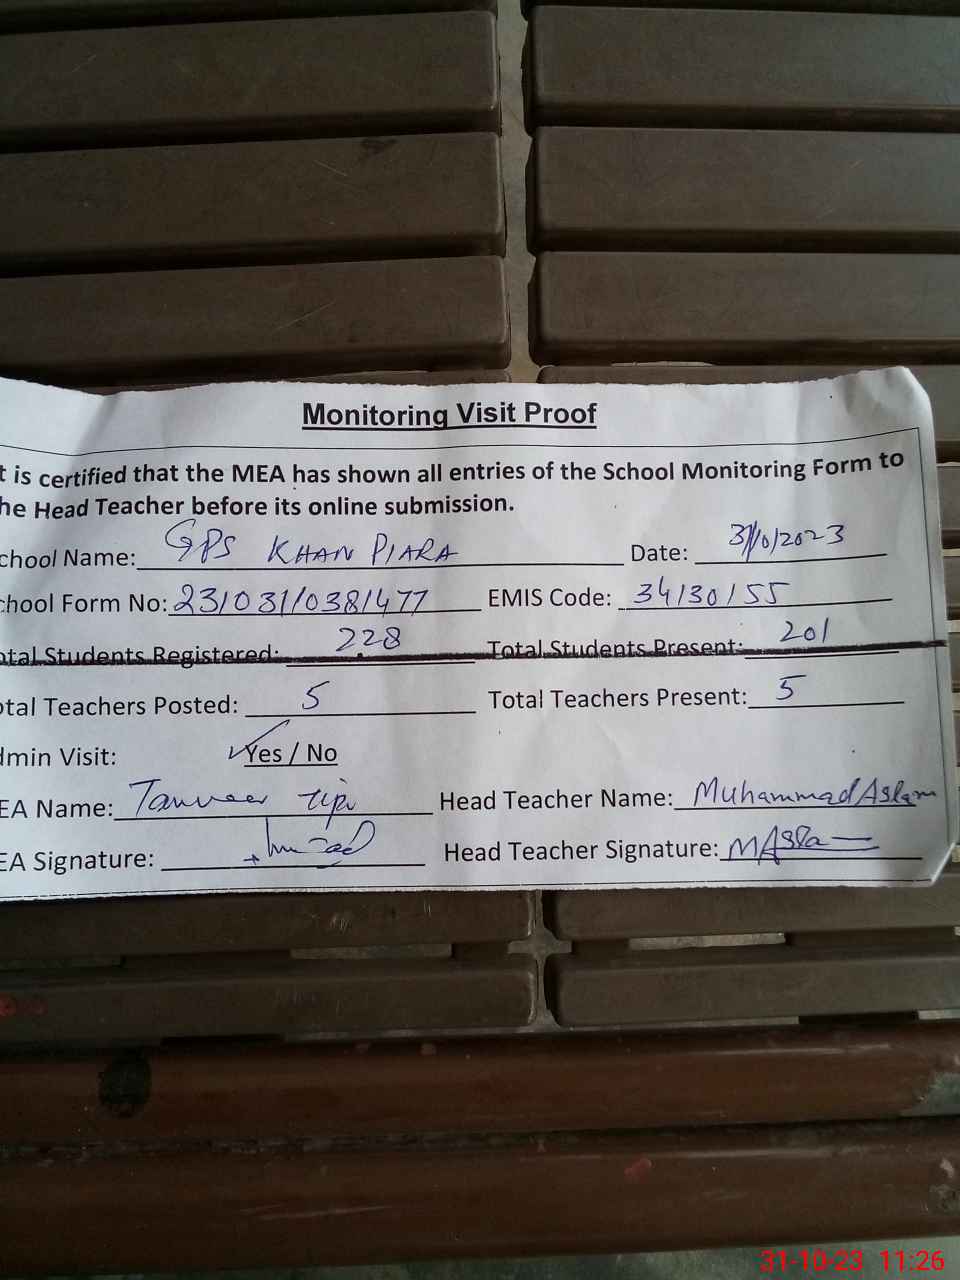 Monitoring Visit Proof
t is certified that the MEA has shown all entries of the School Monitoring Form to
he Head Teacher before its online submission.
chool Name: GPS KHAN PIARA Date: 31/10/2023
chool Form No: 231031/0381477 EMIS Code: 34130155
otal Students Registered: 228 Total Students Present: 201
otal Teachers Posted: 5 Total Teachers Present: 5
dmin Visit: Yes / No
EA Name: Tanveer Head Teacher Name: Muhammad Aslam
EA Signature: Head Teacher Signature: MAsla
31-10-23 11:26